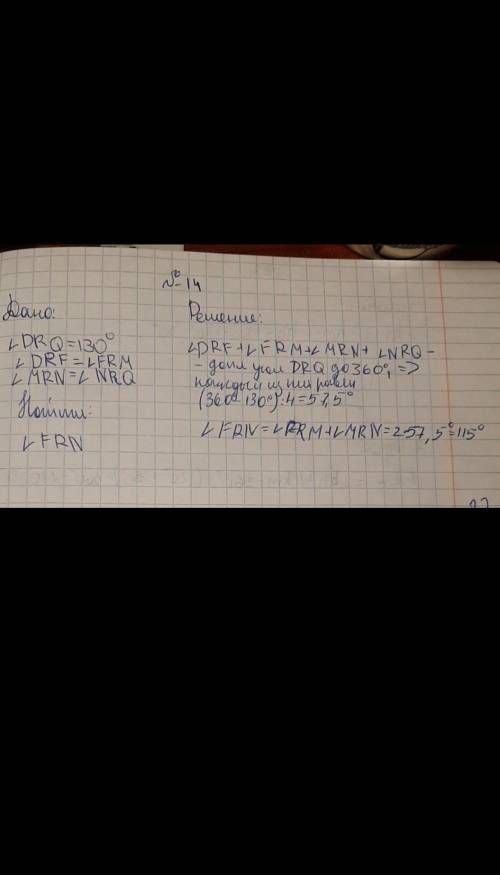 № 14
Дано:
∠DRQ=130°
∠DRF=∠FRM
∠MRN=∠NRQ
Найти:
∠FRN
Решение:
∠DRF+∠FRM+∠MRN+∠NRQ-
- допл угол DRQ до 360°, =>
каждый из них равен
(360°-130°):4=57,5°
∠FRN=∠FRM+∠MRN=2·57,5°=115°